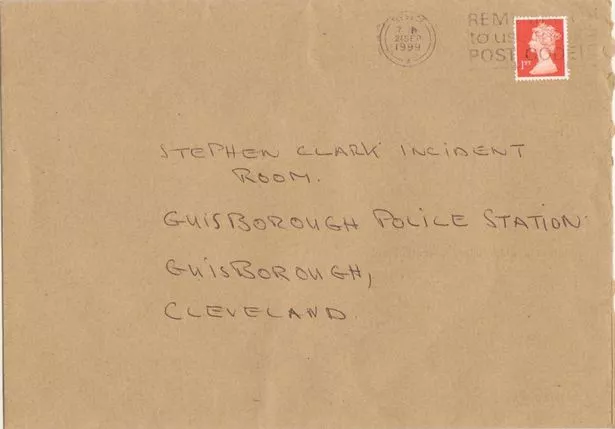 21 SEP
1999
REM
to us
POST CODE
1ST
STEPHEN CLARK INCIDENT
ROOM.
GUISBOROUGH POLICE STATION
GUISBOROUGH,
CLEVELAND.